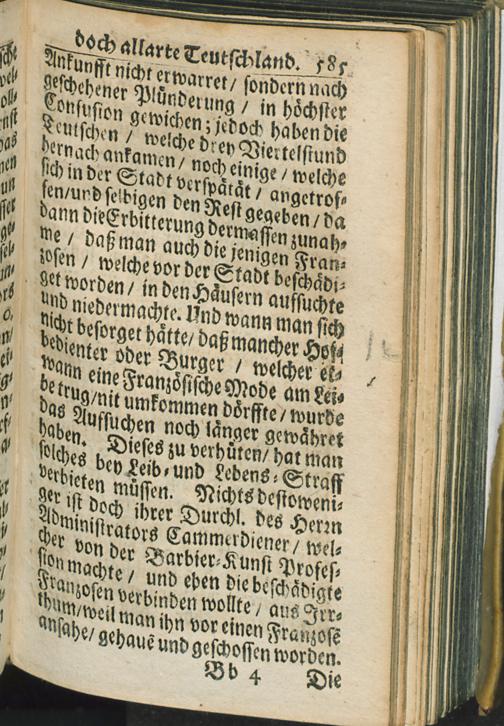 doch allarte Teutschland. 585
Ankunfft nicht erwarret / sondern nach
geschehener Plünderung / in höchster
Confusion gewichen; jedoch haben die
Teutschen / welche drey Viertelstund
hernach ankamen / noch einige / welche
sich in der Stadt verspätät / angetrof-
fen/und selbigen den Rest gegeben / da
dann die Erbitterung dermassen zunah-
me / daß man auch die jenigen Fran-
zosen / welche vor der Stadt beschädi-
get worden / in den Häusern aufsuchte
und niedermachte. Und wann man sich
nicht besorget hätte/ daß mancher Hof-
bedienter oder Burger / welcher et-
wann eine Französische Mode am Lei-
be trug/nit umkommen dörffte / wurde
das Aufsuchen noch länger gewähret
haben. Dieses zu verhüten/ hat man
solches bey Leib- und Lebens-Straff
verbieten müssen. Nichts destoweni-
ger ist doch ihrer Durchl. des Herrn
Administrators Cammerdiener / wel-
cher von der Barbier-Kunst Profes-
sion machte / und eben die beschädigte
Franzosen verbinden wollte / aus Irr-
thum/weil man ihn vor einen Franzosē
ansahe/ gehauē und geschossen worden.
Bb 4 Die